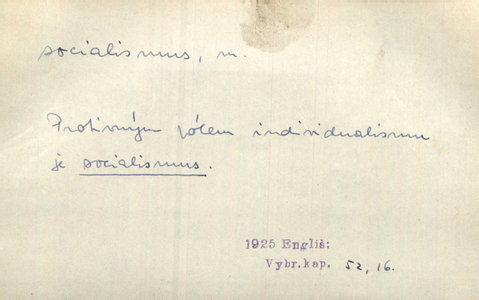 socialismus, m.
Protivným pólem individualismu
je socialismus.
1925 Engliš:
Vybr.kap. 52, 16.